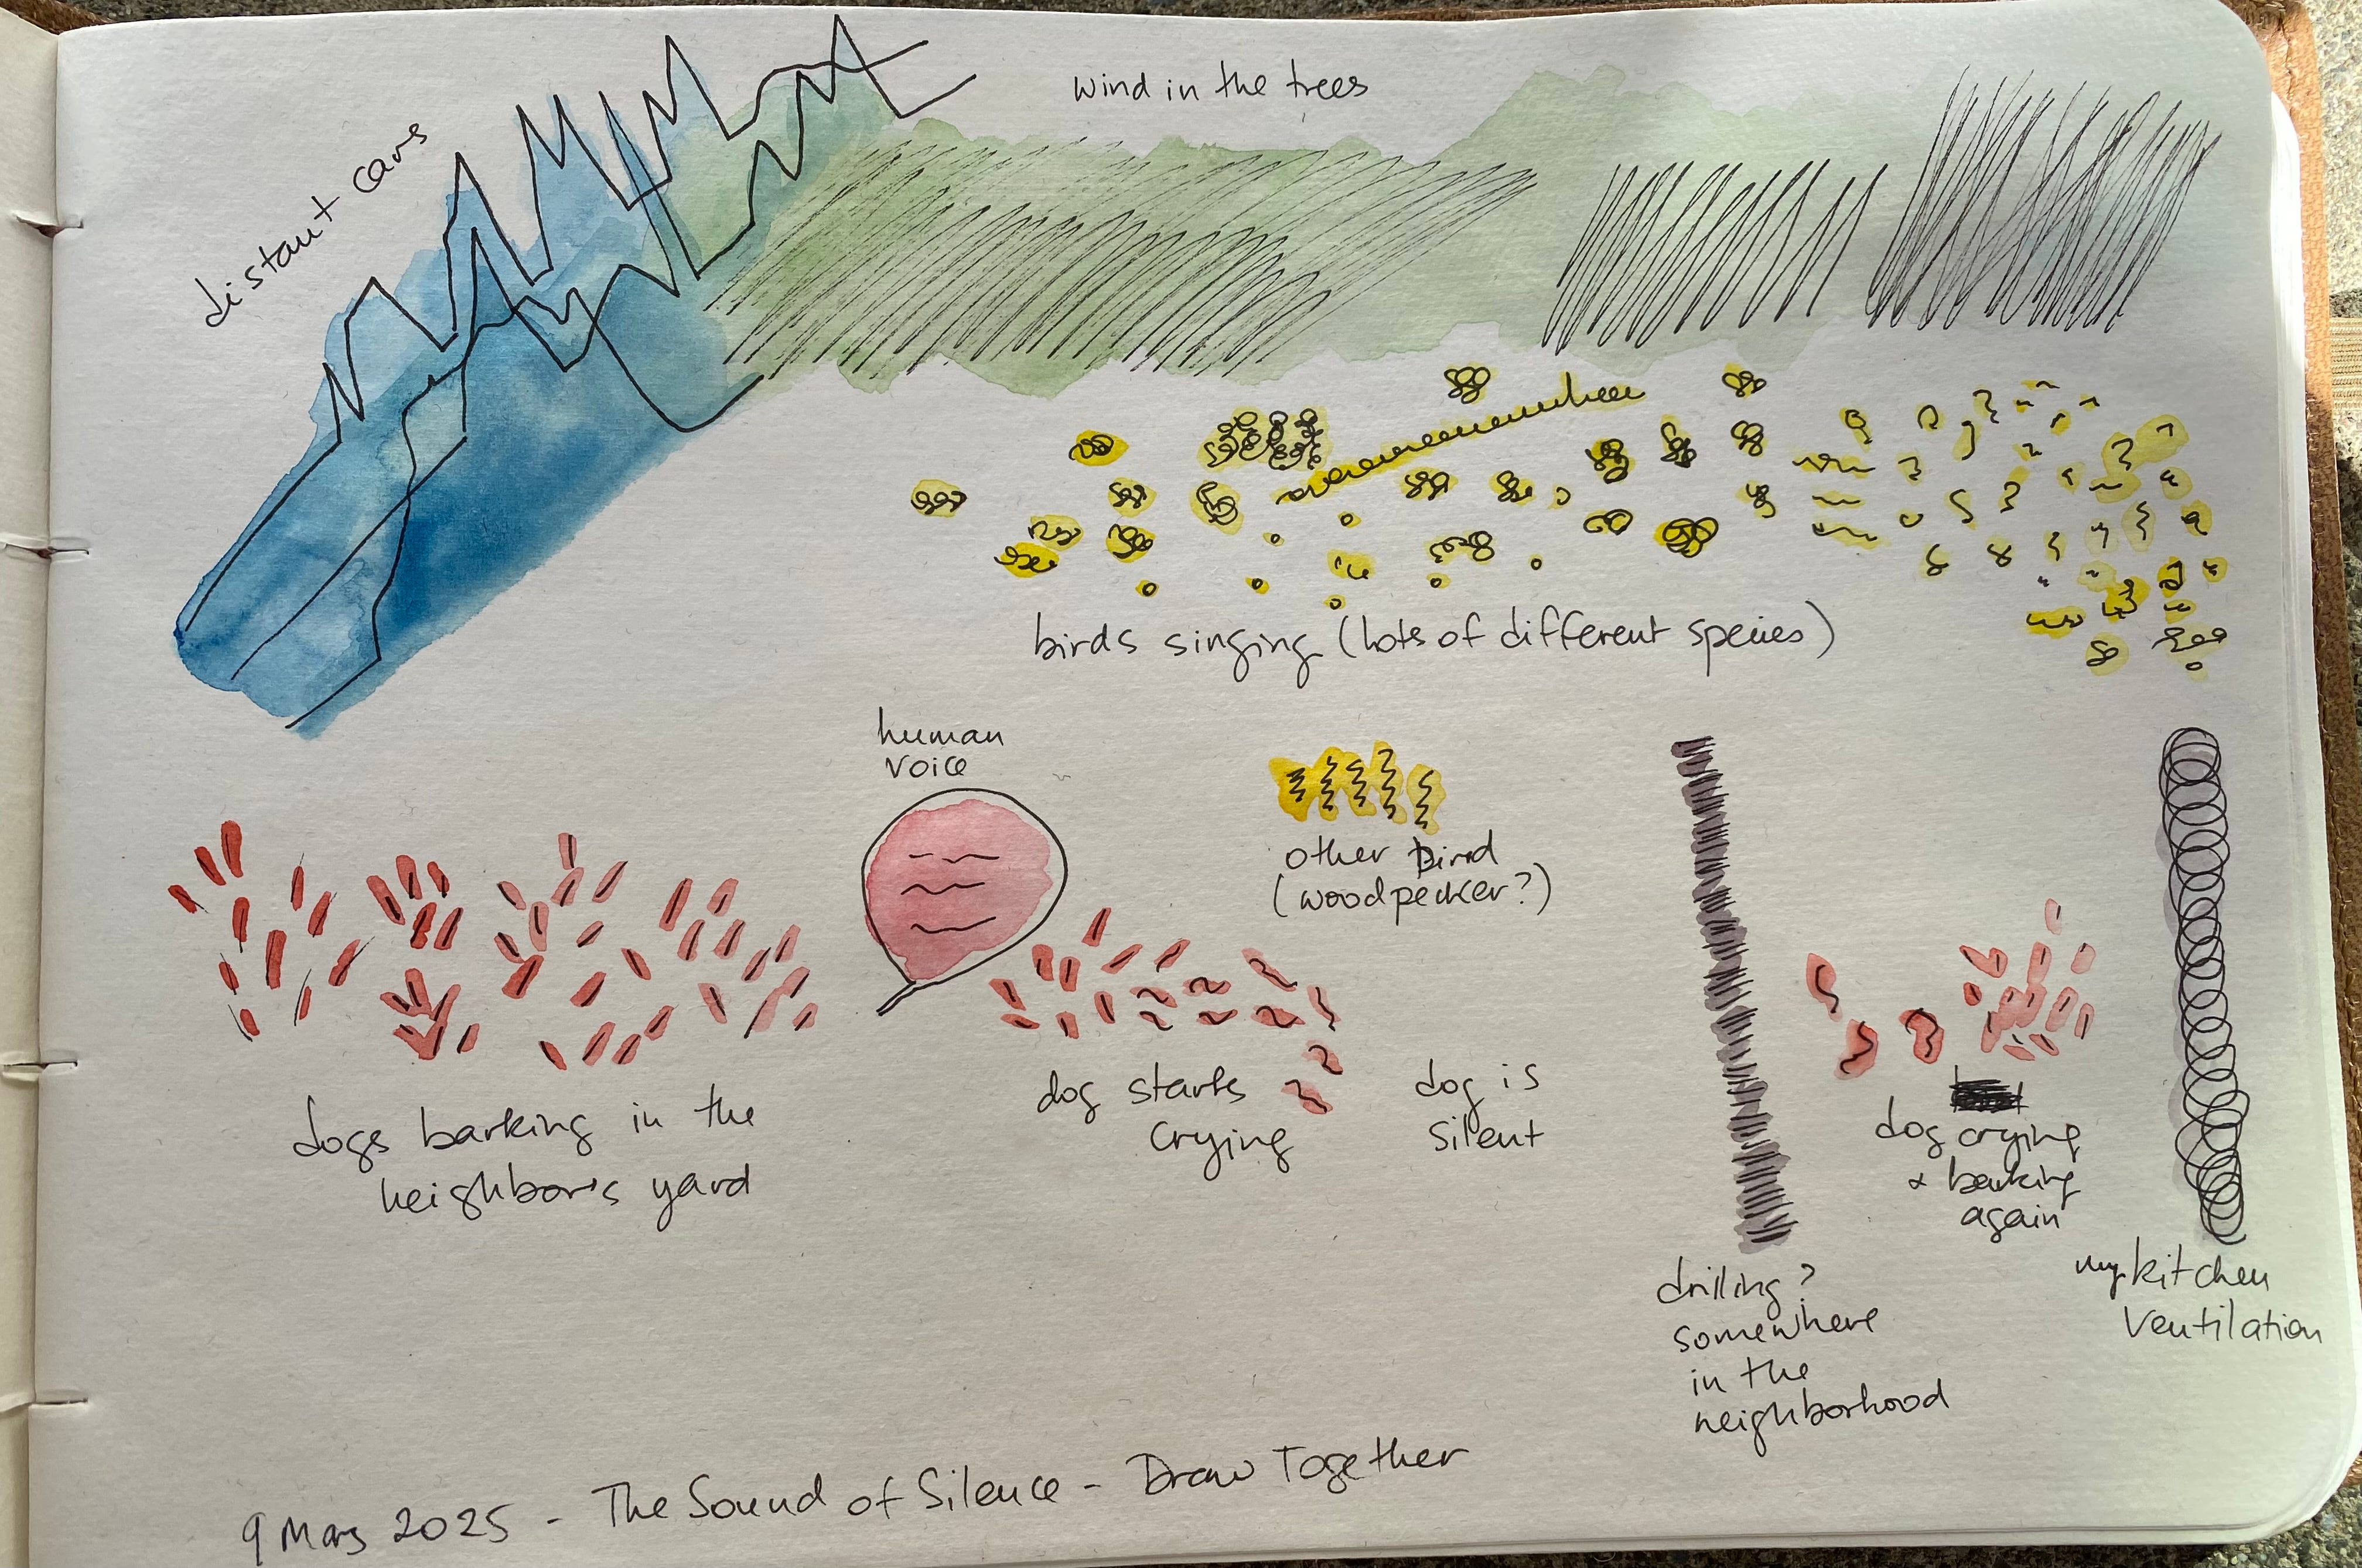 distant cars
wind in the trees
birds singing (lots of different species)
human
voice
other bird
(woodpecker?)
dogs barking in the
neighbor's yard
dog starts
crying
dog is
silent
drilling?
somewhere
in the
neighborhood
dog crying
+ barking
again
my kitchen
ventilation
9 Mars 2025 - The Sound of Silence - Draw Together